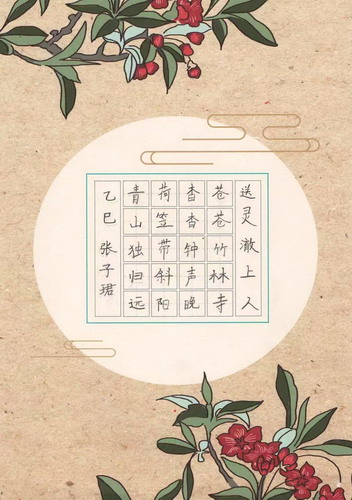 送灵澈上人
苍苍竹林寺
杳杳钟声晚
荷笠带斜阳
青山独归远
乙巳 张子珺